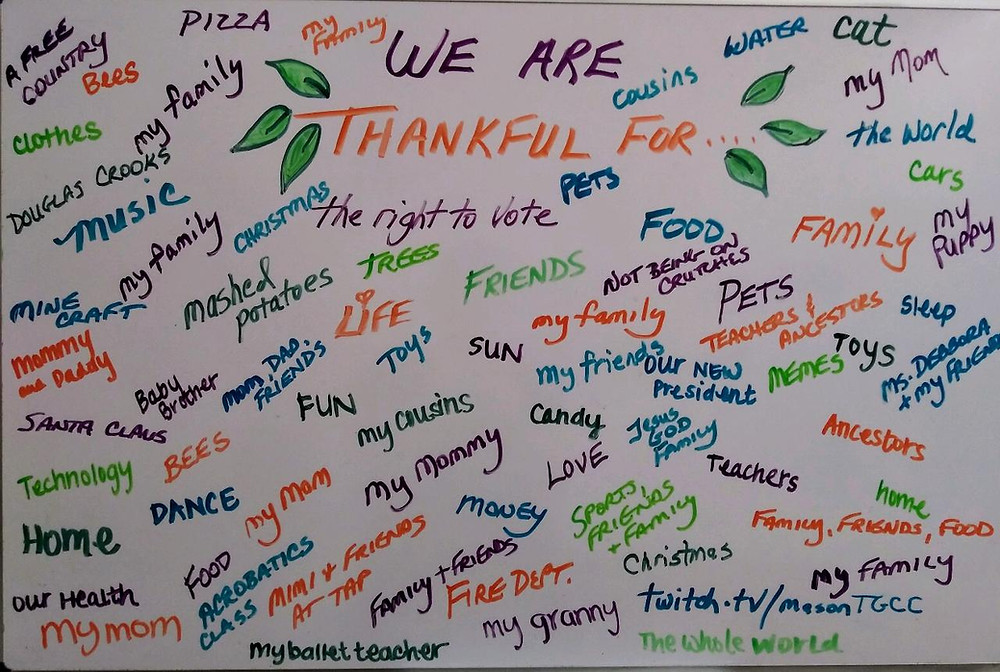 WE ARE
THANKFUL FOR....
A FREE
COUNTRY
PIZZA
my
FAMILY
WATER
cat
Bees
my family
cousins
my Mom
clothes
the world
DOUGLAS CROOKS
cars
music
CHRISTMAS
the right to vote
PETS
FOOD
FAMILY
my
PUPPY
my family
mashed
potatoes
TREES
FRIENDS
NOT BEING ON
CRUTCHES
PETS
MINE
CRAFT
LIFE
my family
TEACHERS &
ANCESTORS
sleep
mommy
and Daddy
Baby
Brother
mom, DAD,
FRIENDS
TOYS
SUN
my friends
OUR NEW
President
MEMES
TOYS
MS. DEBBORA
+ my FRIENDS
SANTA CLAUS
FUN
my cousins
candy
Jesus
GOD
Family
Ancestors
Technology
BEES
my Mommy
LOVE
Teachers
home
Home
DANCE
my mom
MONEY
SPORTS,
FRIENDS
+ FAMILY
FAMILY, FRIENDS, FOOD
our Health
FOOD
ACROBATICS
CLASS
MIMI & FRIENDS
AT TAP
FAMILY + FRIENDS
FIRE DEPT.
Christmas
my FAMILY
my mom
my ballet teacher
my granny
twitch.tv/masonTGCC
The whole world